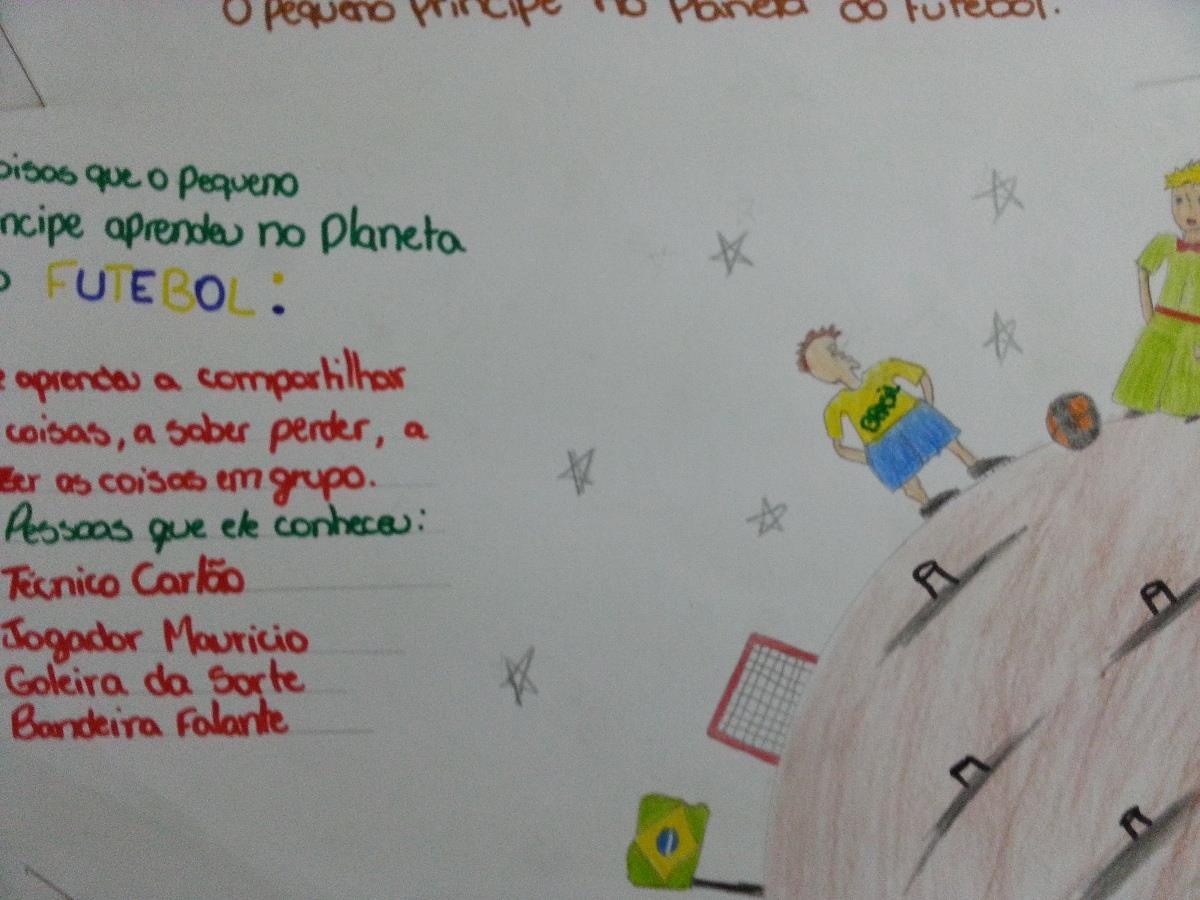 O Pequeno Príncipe no Planeta do Futebol.
oisas que o Pequeno
ncipe aprendeu no Planeta
o FUTEBOL:
e aprendeu a compartilhar
coisas, a saber perder, a
zer as coisas em grupo.
Pessoas que ele conheceu:
Técnico Carlão
Jogador Mauricio
Goleira da Sorte
Bandeira Falante
BRASIL